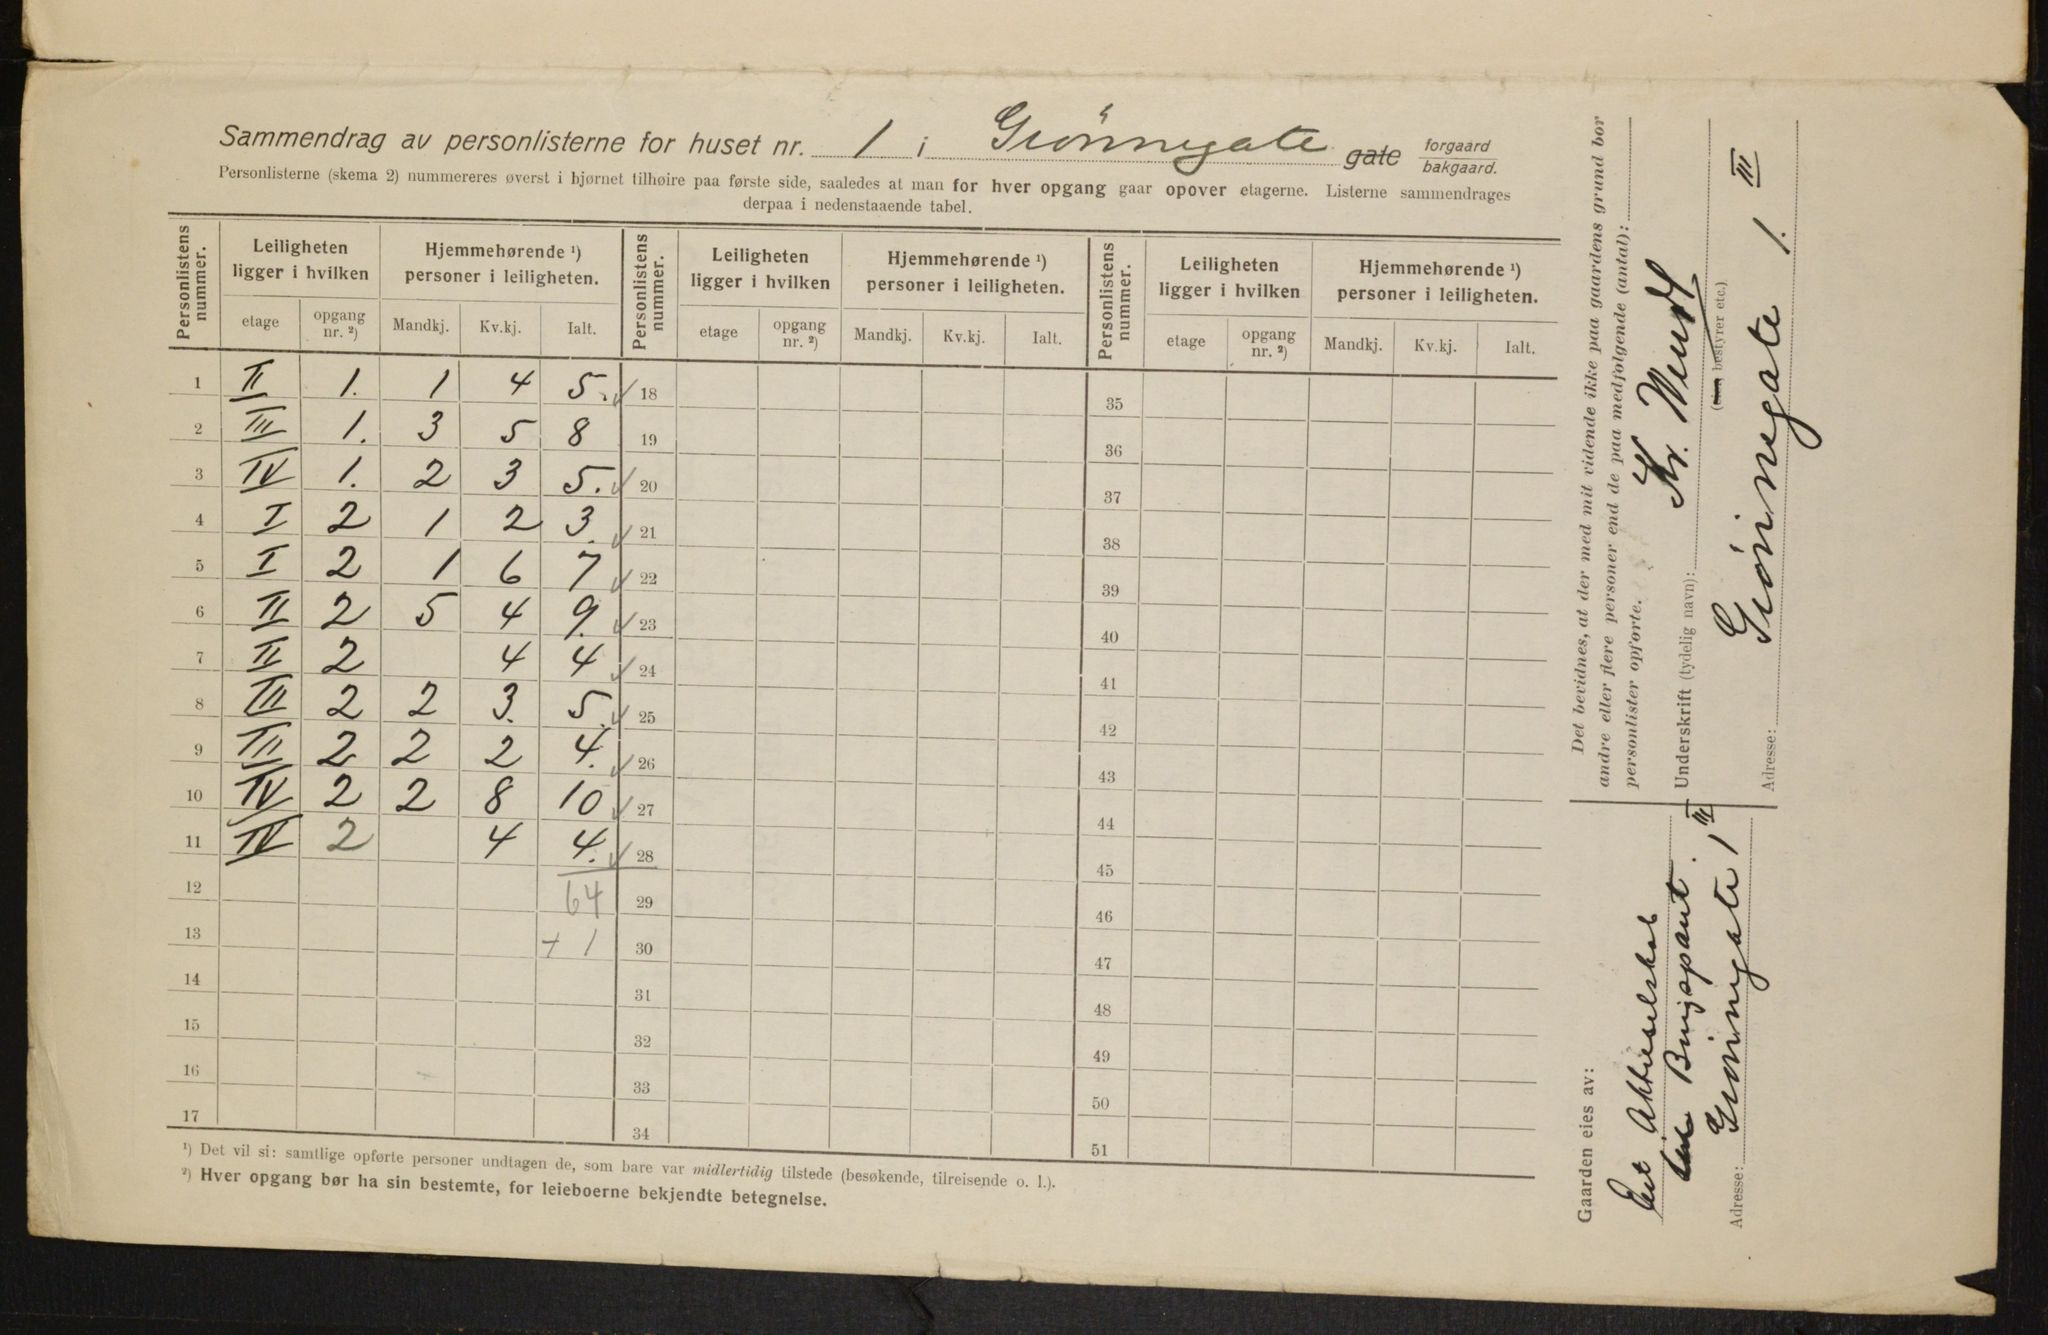 Sammendrag av personlisterne for huset nr. 1 i Grönnegate gate forgaard bakgaard.
Personlisterne (skema 2) nummereres øverst i hjørnet tilhøire paa første side, saaledes at man for hver opgang gaar opover etagerne. Listerne sammendrages
derpaa i nedenstaaende tabel.
Personlistens nummer. Leiligheten ligger i hvilken Hjemmehørende ¹) personer i leiligheten. Personlistens nummer. Leiligheten ligger i hvilken Hjemmehørende ¹) personer i leiligheten. Personlistens nummer. Leiligheten ligger i hvilken Hjemmehørende ¹) personer i leiligheten.
etage opgang nr. ²) Mandkj. Kv.kj. Ialt. etage opgang nr. ²) Mandkj. Kv.kj. Ialt. etage opgang nr. ²) Mandkj. Kv.kj. Ialt.
1 II 1. 1 4 5. ✓ 18 35
2 III 1. 3 5 8 19 36
3 IV 1. 2 3 5. ✓ 20 37
4 I 2 1 2 3. ✓ 21 38
5 I 2 1 6 7 ✓ 22 39
6 II 2 5 4 9. ✓ 23 40
7 II 2 4 4 ✓ 24 41
8 III 2 2 3. 5. ✓ 25 42
9 III 2 2 2 4. ✓ 26 43
10 IV 2 2 8 10 ✓ 27 44
11 IV 2 4 4. ✓ 28 45
12 64 29 46
13 + 1 30 47
14 31 48
15 32 49
16 33 50
17 34 51
¹) Det vil si: samtlige opførte personer undtagen de, som bare var midlertidig tilstede (besøkende, tilreisende o. l.).
²) Hver opgang bør ha sin bestemte, for leieboerne bekjendte betegnelse.
Det bevidnes, at der med mit vidende ikke paa gaardens grund bor
andre eller flere personer end de paa medfølgende (antal):
personlister opførte.
Underskrift (tydelig navn): Kr.
(eier, bestyrer etc.)
Adresse: Grönnegate 1. III
Gaarden eies av:
Aktieselskab
Adresse: Grönnegate 1 III